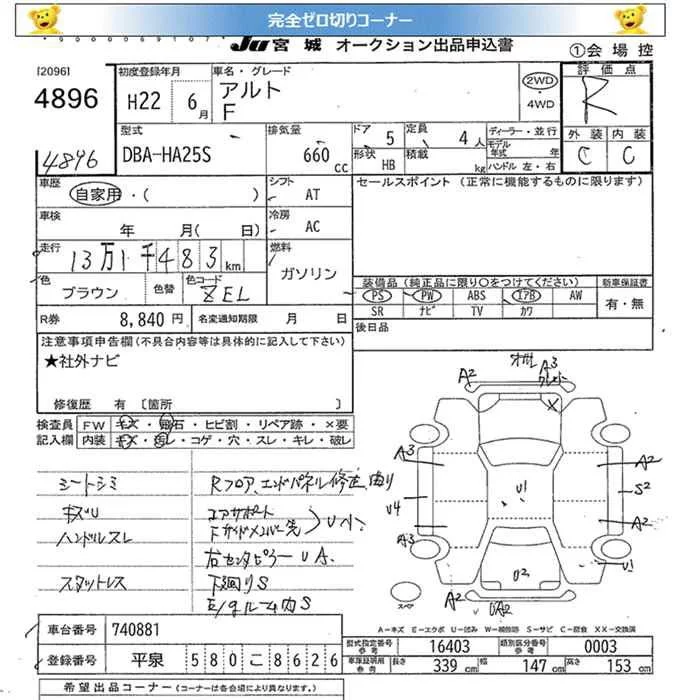 完全ゼロ切りコーナー
JU宮城 オークション出品申込書 ①会場控
[2096]
4896
4896
初度登録年月 H22 6月
車名・グレード アルト F
2WD ・ 4WD
評価点 R
外装 C 内装 C
型式 DBA-HA25S
排気量 660 cc
ドア 5 定員 4人
形状 HB 積載 kg
ディーラー・並行
モデル年式 年
ハンドル 左・右
車歴 自家用・( )
シフト AT
車検 年 月( 日)
冷房 AC
走行 13万1千483km
燃料 ガソリン
色 ブラウン 色替 色コード ZEL
R券 8,840円 名変通知期限 月 日
セールスポイント (正常に機能するものに限ります)
装備品 (純正品に限り○をつけてください) 新車保証書
PS PW ABS エアB AW 有・無
SR ナビ TV カワ
後日品
注意事項申告欄(不具合内容等は具体的に記入して下さい)
★社外ナビ
修復歴 有 [箇所 ]
検査員 FW キズ・飛石・ヒビ割・リペア跡・×要
記入欄 内装 キズ・汚レ・コゲ・穴・スレ・キレ・破レ
シートシミ
キズU
ハンドルスレ
スタットレス
Rフロア、エンドパネル修正曲り
コアサポート
下サイドメンバー先 U小
右センタピラー UA.
下廻りS
E/gルーム内S
A2 A3
A3 A2
U4 U1 S2
A3 A2
U1
U2
A2 UA2
スペア
A-キズ E-エクボ U-凹み W-補修跡 S-サビ C-腐食 XX-交換済
車台番号 740881
登録番号 平泉 580こ8626
型式指定番号 参考 16403 類別区分番号 参考 0003
車庫証明用 参考 長さ 339 cm 幅 147 cm 高さ 153 cm
希望出品コーナー(各会場により異なります。)